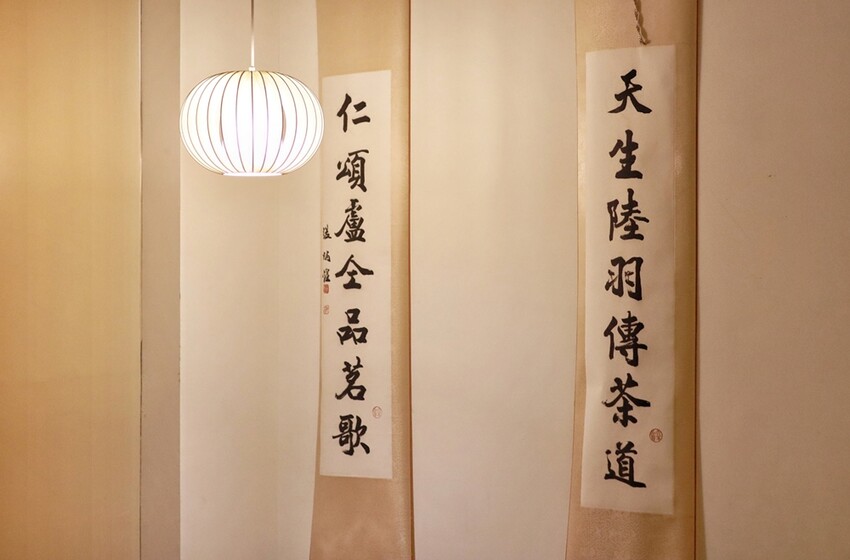 天生陸羽傳茶道
仁頌盧仝品茗歌